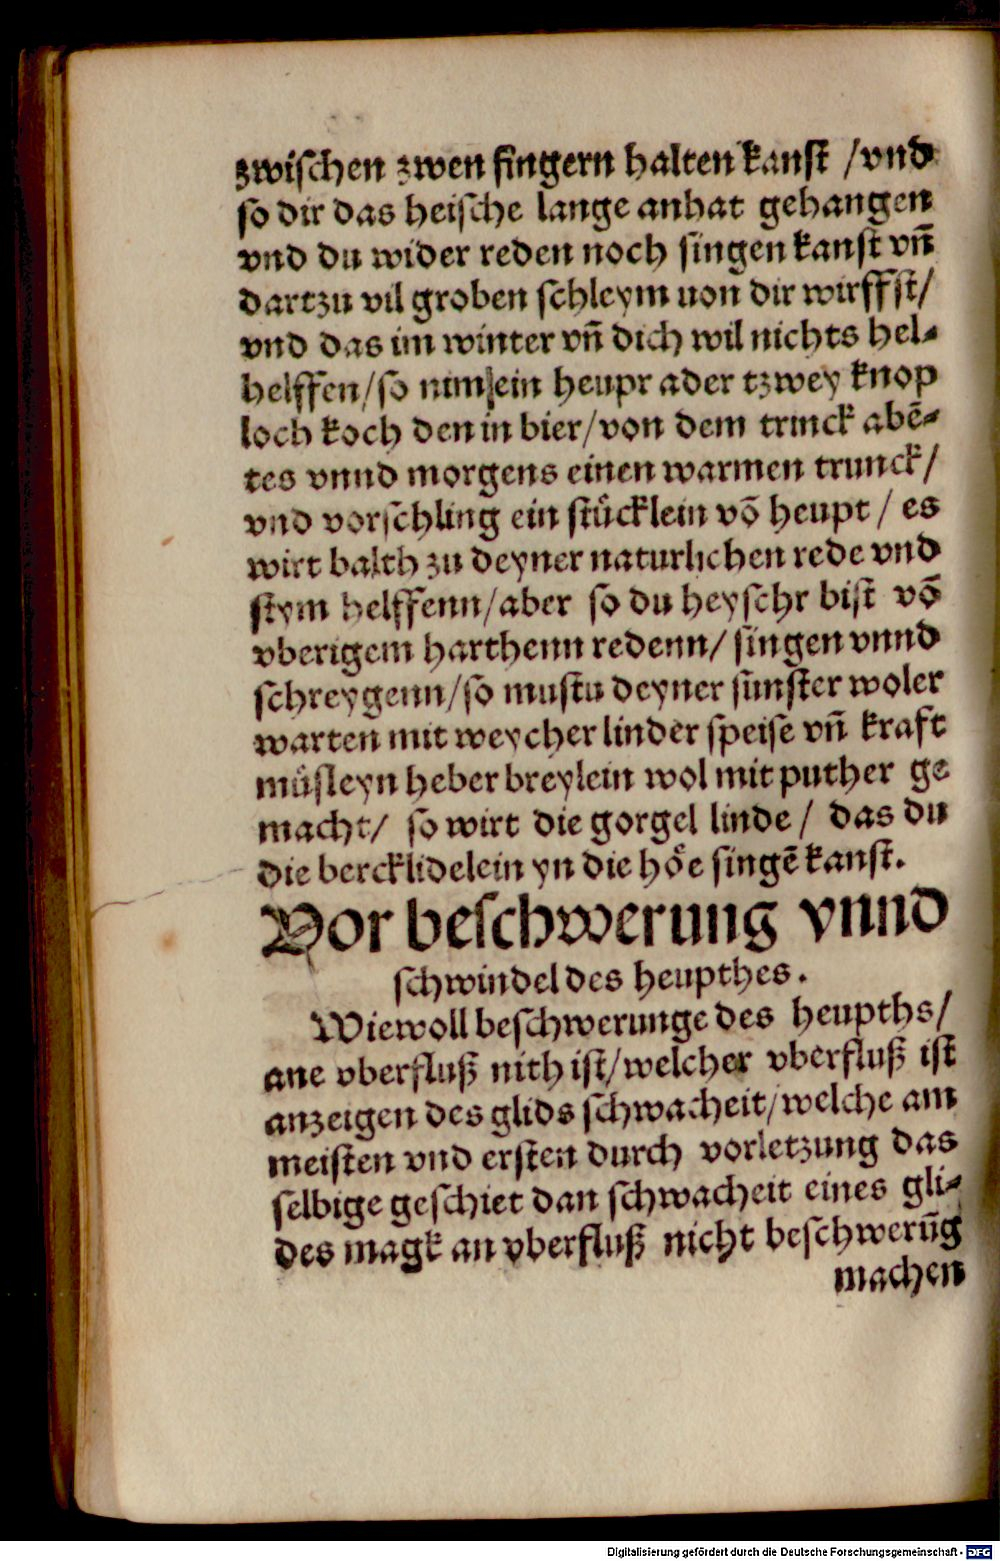 zwischen zwen fingern halten kanst / vnd
so dir das heische lange anhat gehangen
vnd du wider reden noch singen kanst vñ
dartzu vil groben schleym uon dir wirffst/
vnd das im winter vñ dich wil nichts hel-
helffen/so nim ein heupr ader tzwey knop
loch koch den in bier/von dem trinck abē-
tes vnnd morgens einen warmen trunck/
vnd vorschling ein stücklein vō heupt / es
wirt balth zu deyner naturlichen rede vnd
stym helffenn/aber so du heyschr bist vō
vberigem harthenn redenn/ singen vnnd
schreygenn/so mustu deyner sunster woler
warten mit weycher linder speise vñ kraft
müsleyn heber breylein wol mit puther ge
macht/ so wirt die gorgel linde / das du
die bercklidelein yn die höe singē kanst.
Vor beschwerung vnnd
schwindel des heupthes.
Wiewoll beschwerunge des heupths/
ane vberfluß nith ist/welcher vberfluß ist
anzeigen des glids schwacheit/welche am
meisten vnd ersten durch vorletzung das
selbige geschiet dan schwacheit eines gli-
des magk an vberfluß nicht beschwerūg
machen
Digitalisierung gefördert durch die Deutsche Forschungsgemeinschaft - DFG